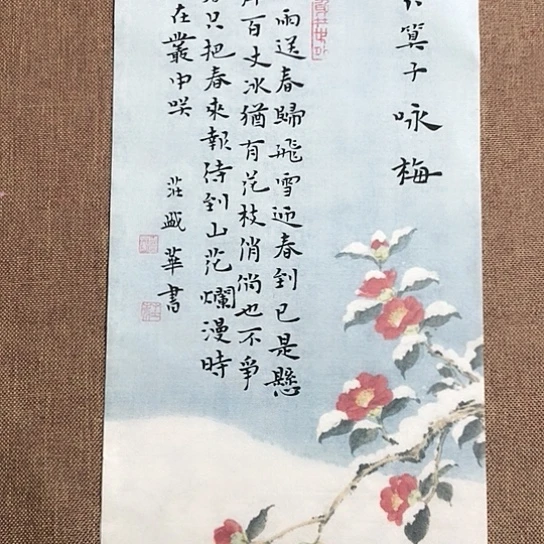 算子咏梅
雨送春歸飛雪迎春到已是懸
百丈冰猶有花枝俏俏也不爭
只把春來報待到山花爛漫時
在叢中咲
華書